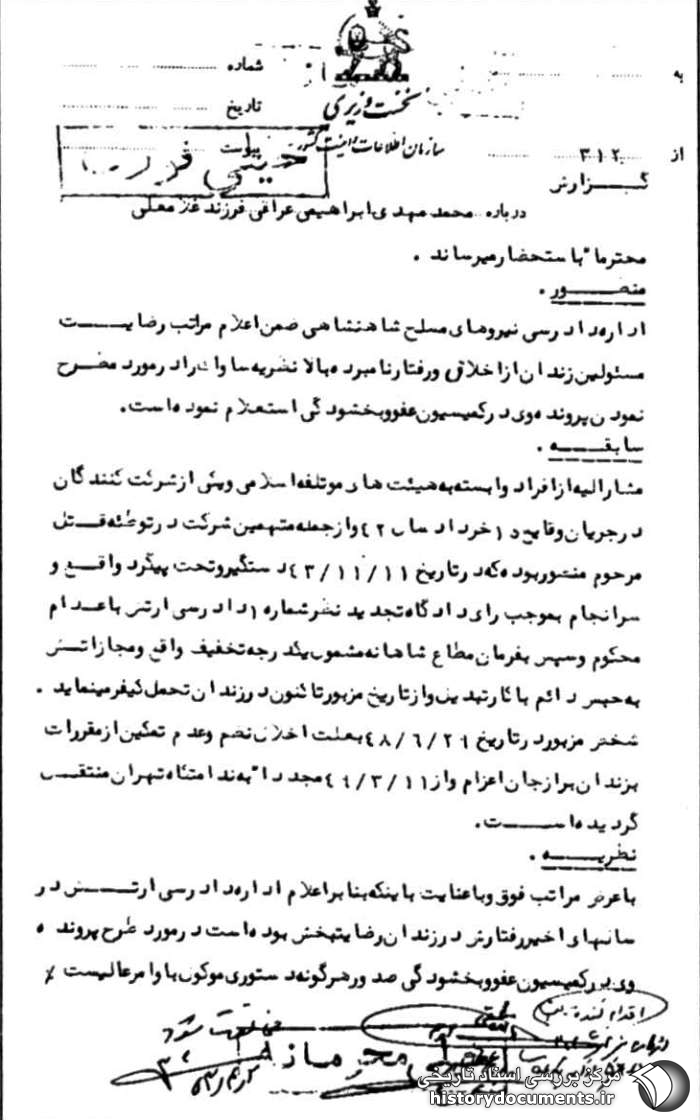 به
شماره
نخست وزیری
تاریخ
سازمان اطلاعات و امنیت کشور
پیوست
از ۳۱۲
گـــزارش
درباره محمد مهدی ابراهیمی عراقی فرزند غلامعلی
محترما" باستحضار میرساند .
منظـــور .
اداره دادرسی نیروهای مسلح شاهنشاهی ضمن اعلام مراتب رضایـــت
مسئولین زندان از اخلاق و رفتار نامبرده بالا نظریه ساواک را در مورد مطرح
نمودن پرونده وی در کمیسیون عفو و بخشودگی استعلام نموده است.
سابقـــه .
مشارالیه از افراد وابسته به هیئت های موتلفه اسلامی و یکی از شرکت کنندگان
در جریان وقایع ۱۵ خرداد سال ۴۲ و از جمله متهمین شرکت در توطئه قتـل
مرحوم منصور بوده که در تاریخ ۴۳/۱۱/۱۱ دستگیر و تحت پیگرد واقـع و
سرانجام بموجب رای دادگاه تجدید نظر شماره ۱ دادرسی ارتش باعدام
محکوم و سپس بفرمان مطاع شاهانه مشمول یکدرجه تخفیف واقع و مجازاتـش
به حبس دائم با کار تبدیل و از تاریخ مزبور تاکنون در زندان تحمل کیفر مینماید .
شخص مزبور در تاریخ ۴۸/۶/۲۹ بعلت اخلال نظم و عدم تمکین از مقررات
بزندان برازجان اعزام و از ۴۹/۳/۱۱ مجددا" به ندامتگاه تهران منتقـل
گردیده اســـت.
نظریـــه .
با عرض مراتب فوق و با عنایت باینکه بنا بر اعلام اداره دادرسی ارتـــش در
سالهای اخیر رفتارش در زندان رضایتبخش بوده است در مورد طرح پرونده
وی در کمیسیون عفو و بخشودگی صدور هرگونه دستوری موکول باوامر عالیست ٪
اقدام کننده
محرمانه
مرکز بررسی اسناد تاریخی
historydocuments.ir